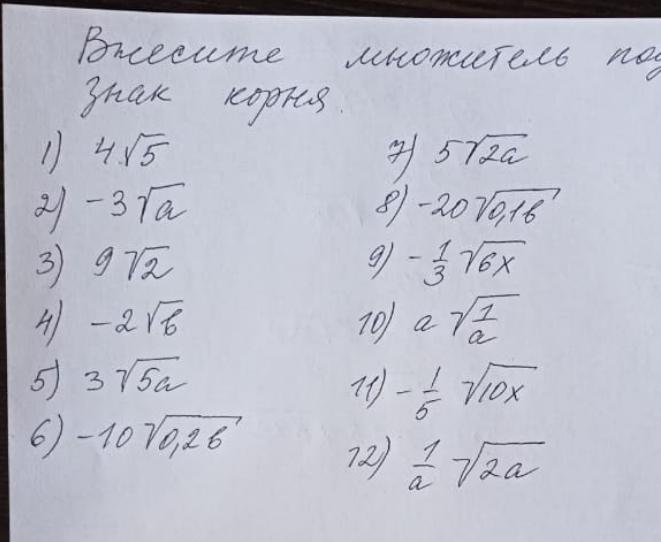 Внесите множитель под
знак корня.
1) 4√5
2) -3√a
3) 9√2
4) -2√b
5) 3√5a
6) -10√0,2b
7) 5√2a
8) -20√0,1b
9) -1/3 √6x
10) a√1/a
11) -1/5 √10x
12) 1/a √2a